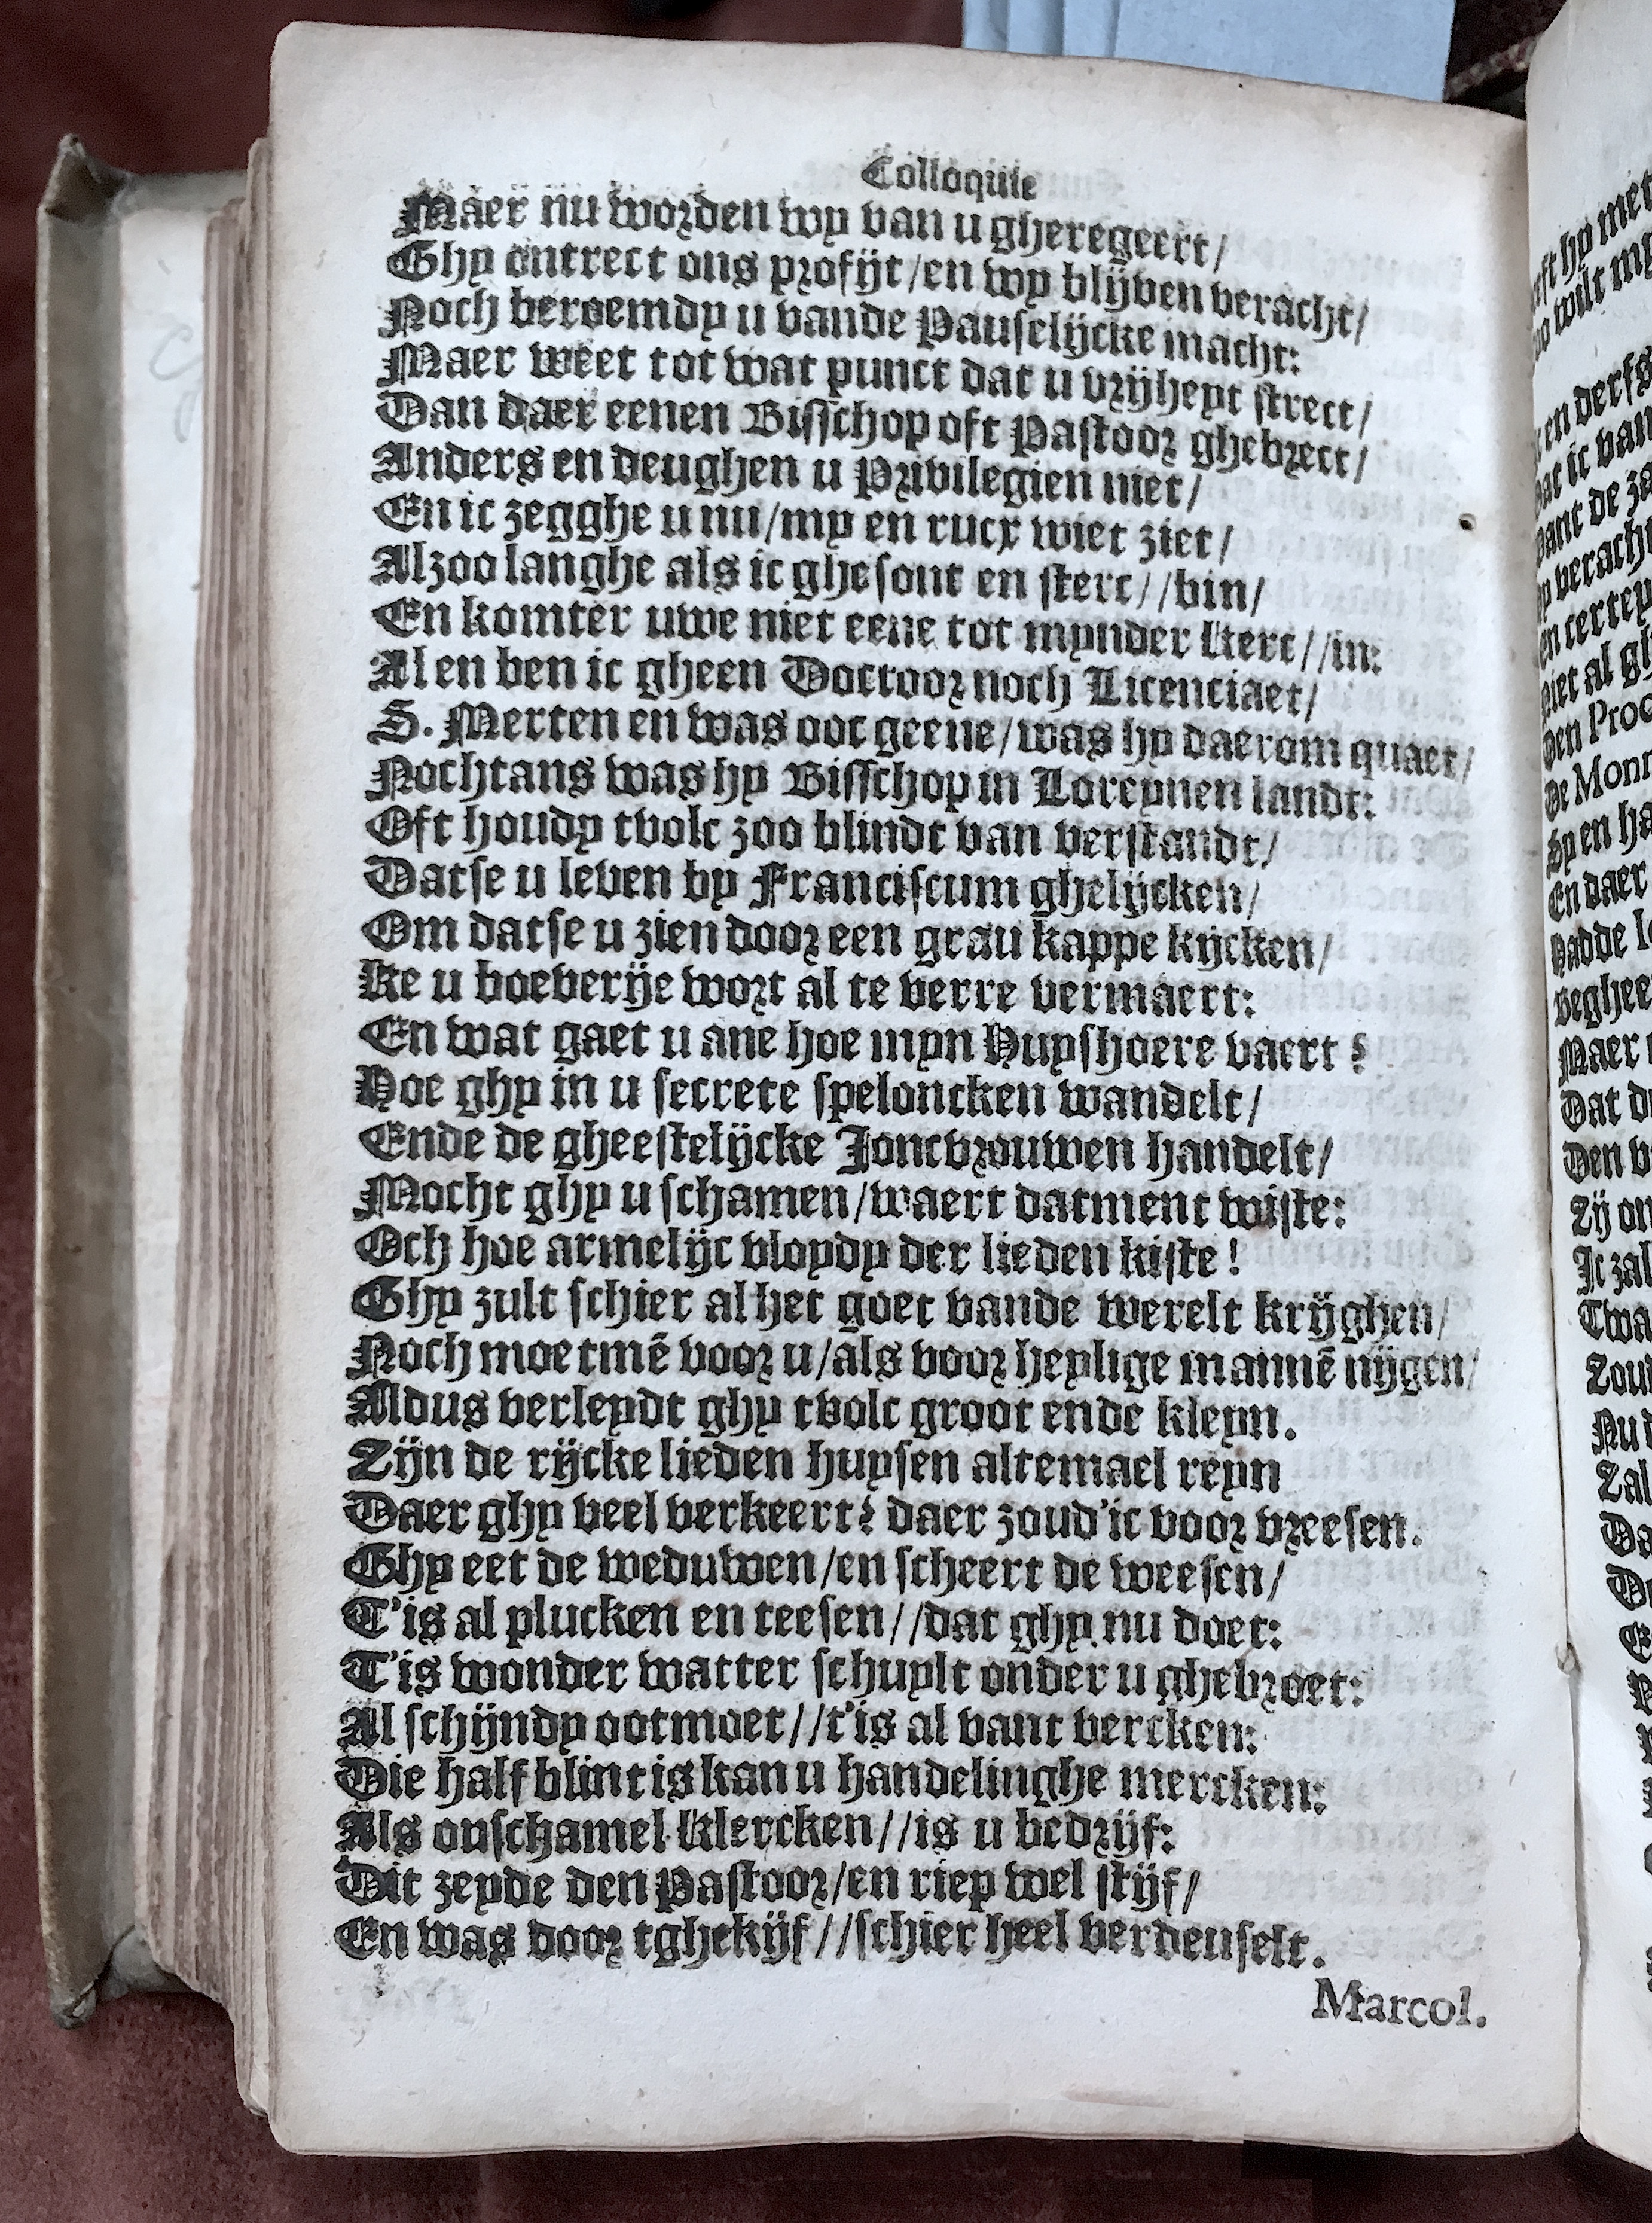 Colloquie
Maer nu worden wy van u gheregeert/
Ghy ontrect ons profijt/en wy blijven veracht/
Noch beroemdy u vande Pauselijcke macht:
Maer weet tot wat punct dat u vrijheyt strect/
Dan daer eenen Bisschop oft Pastoor ghebrect/
Anders en deughen u Privilegien niet/
En ic zegghe u nu/my en rucx wiet ziet/
Alzoo langhe als ic ghesont en sterc//bin/
En komter uwe niet eene tot mynder kerc//in:
Al en ben ic gheen Doctoor noch Licenciaet/
S. Merten en was ooc geene/was hy daerom quaet/
Nochtans was hy Bisschop in Loreynen landt:
Oft houdy tvolc zoo blindt van verstandt/
Datse u leven by Franciscum ghelijcken/
Om datse u zien door een grau kappe kijcken/
Ke u boeverije wort al te verre vermaert:
En wat gaet u ane hoe myn Huyshoere vaert?
Hoe ghy in u secrete speloncken wandelt/
Ende de gheestelijcke Joncvrouwen handelt/
Mocht ghy u schamen/waert datment wiste:
Och hoe armelijc vloydy der lieden kiste!
Ghy zult schier al het goet vande werelt krijghen/
Noch moetmẽ voor u/als voor heylige mannẽ nijgen/
Aldus verleydt ghy tvolc groot ende kleyn.
Zijn de rijcke lieden huysen altemael reyn
Daer ghy veel verkeert? daer zoud'ic voor vreesen.
Ghy eet de weduwen/en scheert de weesen/
T'is al plucken en teesen//dat ghy nu doet:
T'is wonder watter schuylt onder u ghebroet:
Al schijndy ootmoet//t'is al vant vercken:
Die half blint is kan u handelinghe mercken:
Als onschamel klercken//is u bedrijf:
Dit zeyde den Pastoor/en riep wel stijf/
En was door tghekijf//schier heel verdeuselt.
Marcol.